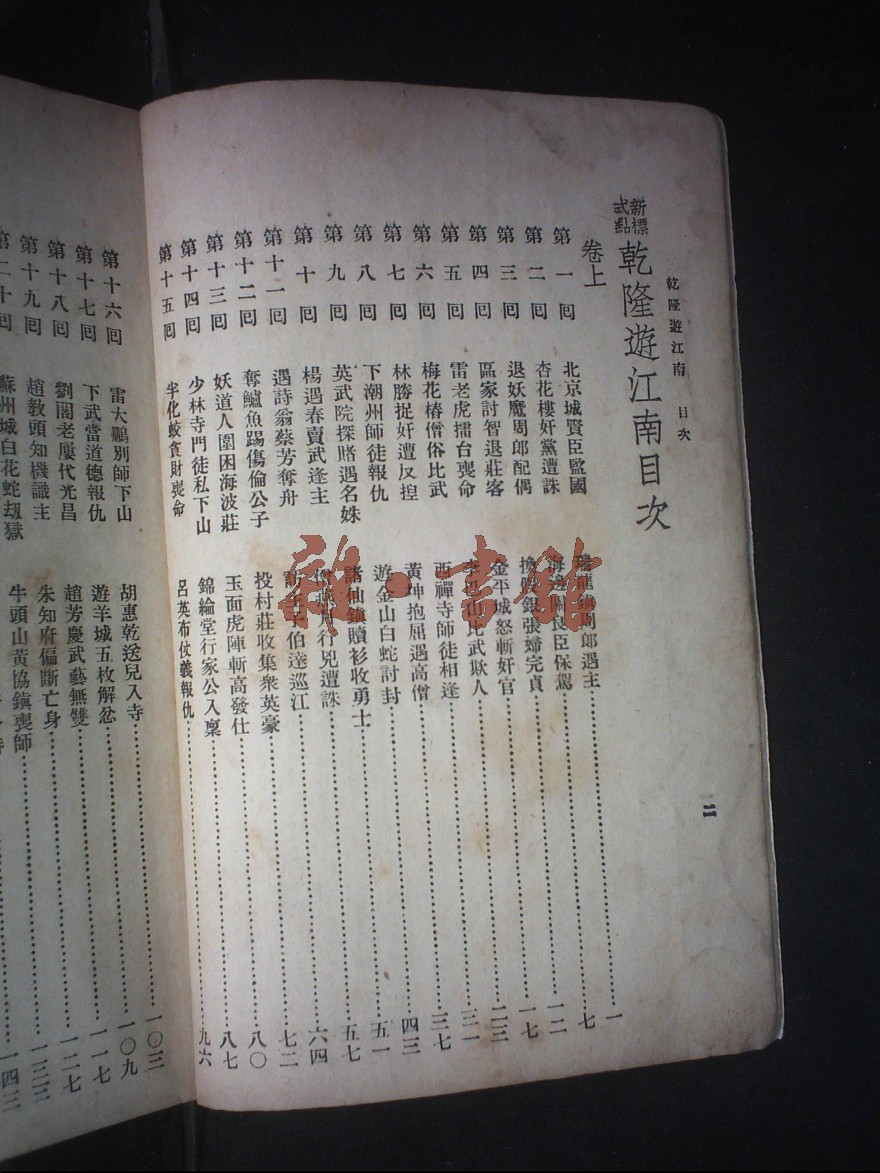 乾隆遊江南 目次
新標點式 乾隆遊江南目次
卷上
第一回 北京城賢臣監國 周郎遇主 一
第二回 杏花樓奸黨遭誅 良臣保駕 七
第三回 退妖魔周郎配偶 換假銀張婦完貞 一二
第四回 區家討智退莊客 金平城怒斬奸官 一七
第五回 雷老虎擂台喪命 李巴山比武欺人 二三
第六回 梅花樁僧俗比武 西禪寺師徒相逢 三一
第七回 林勝捉奸遭反捏 黃坤抱屈遇高僧 三七
第八回 下潮州師徒報仇 遊金山白蛇討封 四三
第九回 英武院探賭遇名姝 諸仙鎮贖衫收勇士 五一
第十回 楊遇春賣武逢主 行兇遭誅 五七
第十一回 遇詩翁蔡芳奪舟 伯達巡江 六四
第十二回 奪鱸魚踢傷倫公子 投村莊收集衆英豪 七二
第十三回 妖道人圍困海波莊 玉面虎陣斬高發仕 八〇
第十四回 少林寺門徒私下山 錦綸堂行家公入稟 八七
第十五回 半化蛟貪財喪命 呂英布仗義報仇 九六
二
第十六回 雷大鵬別師下山 胡惠乾送兒入寺 一〇三
第十七回 下武當道德報仇 遊羊城五枚解忿 一〇九
第十八回 劉閣老屢代光昌 趙芳慶武藝無雙 一一七
第十九回 趙教頭知機識主 朱知府偏斷亡身 一二七
第二十回 蘇州城白花蛇劫獄 牛頭山黃協鎮喪師 一三三
一四三
雜·書館